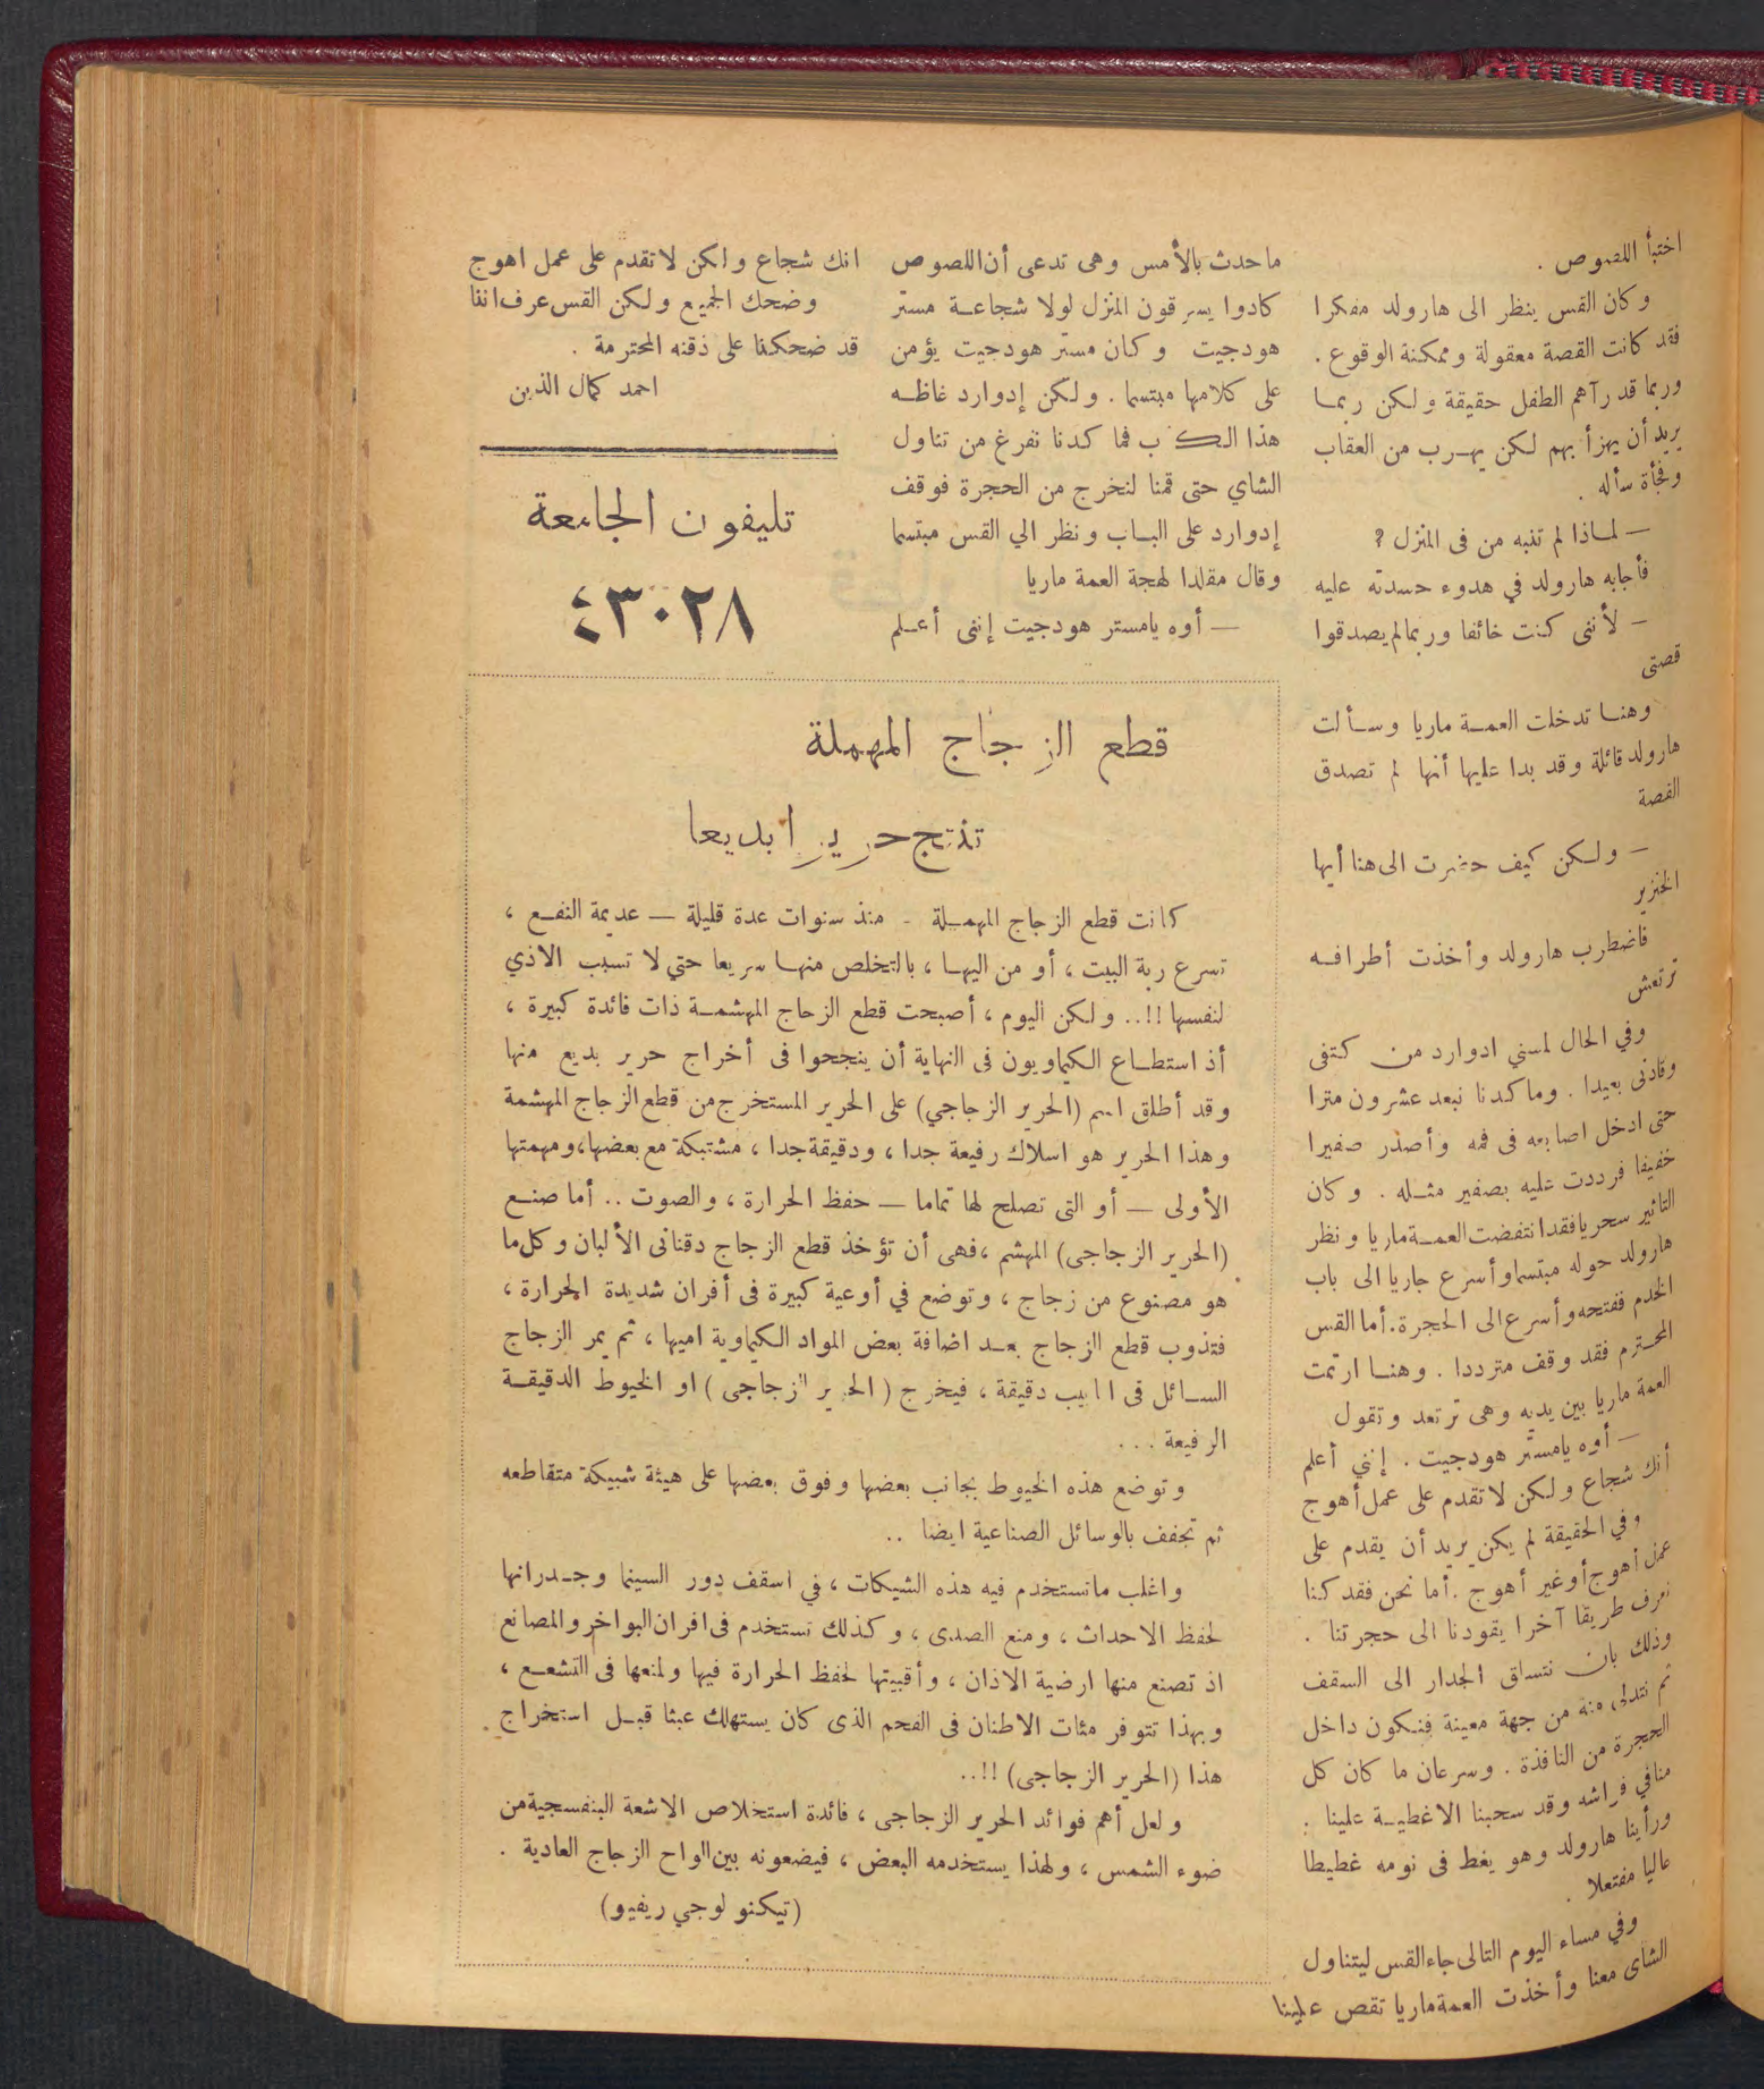 اختبأ اللصوص .
وكان القس ينظر الى هارولد مفكرا
فقد كانت القصة معقولة وممكنة الوقوع .
وربما قد رآهم الطفل حقيقة ولكن ربما
يريد أن يهزأ بهم لكن يهرب من العقاب
وفجأة سأله .
— لماذا لم تنبه من فى المنزل ؟
فأجابه هارولد في هدوء حسدته عليه
— لأننى كنت خائفا وربما لم يصدقوا
قصتى
وهنا تدخلت العمة ماريا وسألت
هارولد قائلة وقد بدا عليها أنها لم تصدق
القصة
— ولكن كيف حضرت الى هنا أيها
الخنزير
فاضطرب هارولد وأخذت أطرافه
ترتعش
وفي الحال لمسني ادوارد من كتفى
وقادنى بعيدا . وما كدنا نبعد عشرون مترا
حتى ادخل اصابعه فى فمه وأصدر صفيرا
خفيفا فرددت عليه بصفير مثله . وكان
التاثير سحريا فقد انتفضت العمة ماريا ونظر
هارولد حوله مبتسما وأسرع جاريا الى باب
الخدم ففتحه وأسرع الى الحجرة . أما القس
المحترم فقد وقف مترددا . وهنا ارتمت
العمة ماريا بين يديه وهى ترتعد وتقول
— أوه يامستر هودجيت . إنني أعلم
أنك شجاع ولكن لا تقدم على عمل أهوج
وفي الحقيقة لم يكن يريد أن يقدم على
عمل أهوج أو غير أهوج . أما نحن فقد كنا
نعرف طريقا آخرا يقودنا الى حجرتنا .
وذلك بان نتساق الجدار الى السقف
ثم نتدلى منه من جهة معينة فنكون داخل
الحجرة من النافذة . وسرعان ما كان كل
منا في فراشه وقد سحبنا الاغطية علينا :
ورأينا هارولد وهو يغط فى نومه غطيطا
عاليا مفتعلا .
وفي مساء اليوم التالى جاء القس ليتناول
الشاى معنا وأخذت العمة ماريا تقص علينا
ما حدث بالأمس وهى تدعى أن اللصوص
كادوا يسرقون المنزل لولا شجاعة مستر
هودجيت وكان مستر هودجيت يؤمن
على كلامها مبتسما . ولكن إدوارد غاظه
هذا الكذب فما كدنا نفرغ من تناول
الشاي حتى قمنا لنخرج من الحجرة فوقف
إدوارد على الباب ونظر الي القس مبتسما
وقال مقلدا لهجة العمة ماريا
— أوه يامستر هودجيت إننى أعلم
انك شجاع ولكن لا تقدم على عمل اهوج
وضحك الجميع ولكن القس عرف اننا
قد ضحكنا على ذقنه المحترمة .
احمد كمال الدين
تليفون الجامعة
٤٣٠٢٨
قطع الزجاج المهملة
تنتج حريرا بديعا
كانت قطع الزجاج المهملة - منذ سنوات عدة قليلة — عديمة النفع ،
تسرع ربة البيت ، أو من اليها ، بالتخلص منها سريعا حتي لا تسبب الاذي
لنفسها !! .. ولكن اليوم ، أصبحت قطع الزجاج المهشمة ذات فائدة كبيرة ،
أذ استطاع الكيماويون فى النهاية أن ينجحوا فى أخراج حرير بديع منها
وقد أطلق اسم (الحرير الزجاجي) على الحرير المستخرج من قطع الزجاج المهشمة
وهذا الحرير هو اسلاك رفيعة جدا ، ودقيقة جدا ، مشتبكة مع بعضها ، ومهمتها
الأولى — أو التى تصلح لها تماما — حفظ الحرارة ، والصوت .. أما صنع
(الحرير الزجاجى) المهشم ، فهى أن تؤخذ قطع الزجاج دقنانى الألبان وكل ما
هو مصنوع من زجاج ، وتوضع في أوعية كبيرة فى أفران شديدة الحرارة ،
فتذوب قطع الزجاج بعد اضافة بعض المواد الكيماوية اميها ، ثم يمر الزجاج
السائل فى انابيب دقيقة ، فيخرج (الحرير الزجاجى) او الخيوط الدقيقة
الرفيعة ...
وتوضع هذه الخيوط بجانب بعضها وفوق بعضها على هيئة شبيكة متقاطعه
ثم تجفف بالوسائل الصناعية ايضا ..
واغلب ما تستخدم فيه هذه الشبكات ، في اسقف دور السينما وجدرانها
لحفظ الاحداث ، ومنع الصدى ، وكذلك تستخدم فى افران البواخر والمصانع
اذ تصنع منها ارضية الاذان ، وأقبيتها لحفظ الحرارة فيها ولمنعها فى التشعع ،
وبهذا تتوفر مئات الاطنان فى الفحم الذى كان يستهلك عبثا قبل استخراج
هذا (الحرير الزجاجى) !! ..
ولعل أهم فوائد الحرير الزجاجى ، فائدة استخلاص الاشعة البنفسجية من
ضوء الشمس ، ولهذا يستخدمه البعض ، فيضعونه بين الواح الزجاج العادية .
(تيكنولوجي ريفيو)